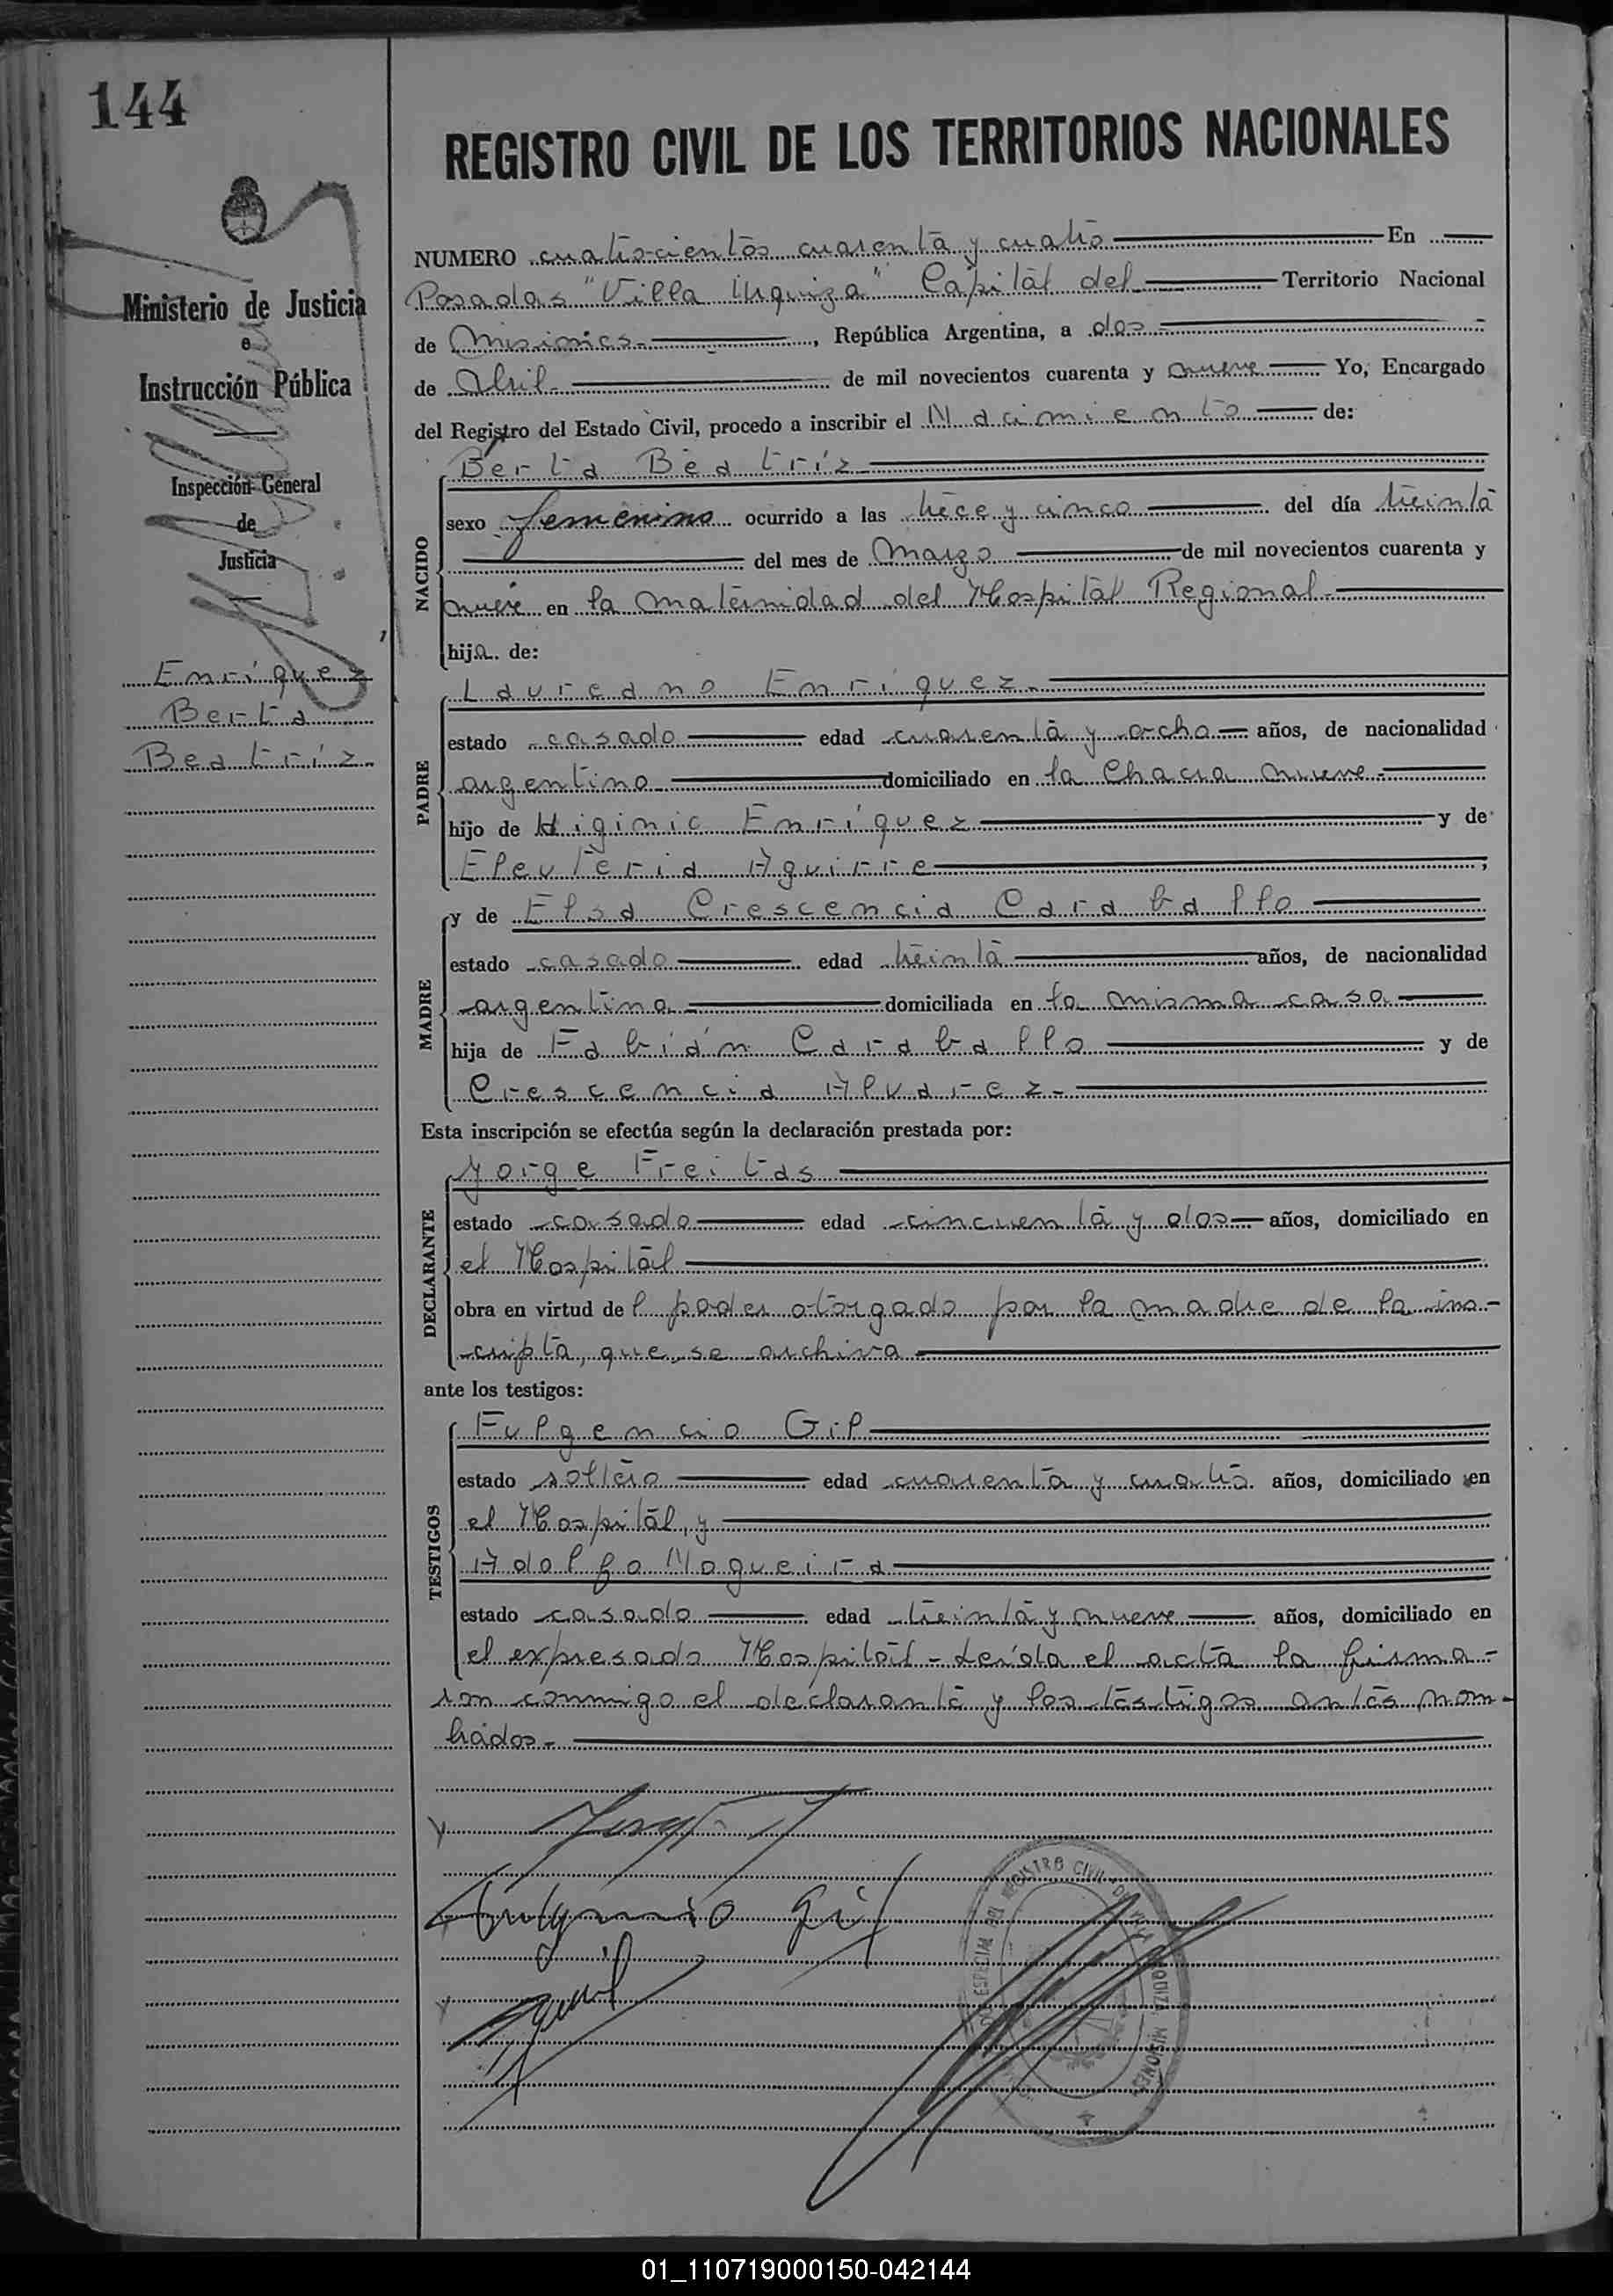 144
REGISTRO CIVIL DE LOS TERRITORIOS NACIONALES
Ministerio de Justicia
e
Instrucción Pública
Inspección General
de
Justicia
Enríquez
Berta
Beatríz
NUMERO cuatrocientos cuarenta y cuatro En
Posadas "Villa Urquiza" Capital del Territorio Nacional
de Misiones, República Argentina, a dos
de Abril de mil novecientos cuarenta y nueve Yo, Encargado
del Registro del Estado Civil, procedo a inscribir el Nacimiento de:
NACIDO
Berta Beatríz
sexo femenino ocurrido a las trece y cinco del día treinta
del mes de Marzo de mil novecientos cuarenta y
nueve en la maternidad del Hospital Regional
hija de:
PADRE
Laureano Enríquez
estado casado edad cuarenta y ocho años, de nacionalidad
argentino domiciliado en la Chacra nueve
hijo de Higinio Enríquez y de
Eleuteria Aguirre;
MADRE
y de Elsa Crescencia Caraballo
estado casado edad treinta años, de nacionalidad
argentina domiciliada en la misma casa
hija de Fabián Caraballo y de
Crescencia Alvarez
Esta inscripción se efectúa según la declaración prestada por:
DECLARANTE
Jorge Freitas
estado casado edad cincuenta y dos años, domiciliado en
el Hospital
obra en virtud del poder otorgado por la madre de la ins-
cripta, que se archiva
ante los testigos:
TESTIGOS
Fulgencio Gil
estado soltero edad cuarenta y cuatro años, domiciliado en
el Hospital, y
Adolfo Nogueira
estado casado edad treinta y nueve años, domiciliado en
el expresado Hospital - Leída el acta la firma-
ron conmigo el declarante y los testigos antes nom-
brados.-
Fulgencio Gil
REGISTRO CIVIL DE VILLA URQUIZA MISIONES
01_110719000150-042144